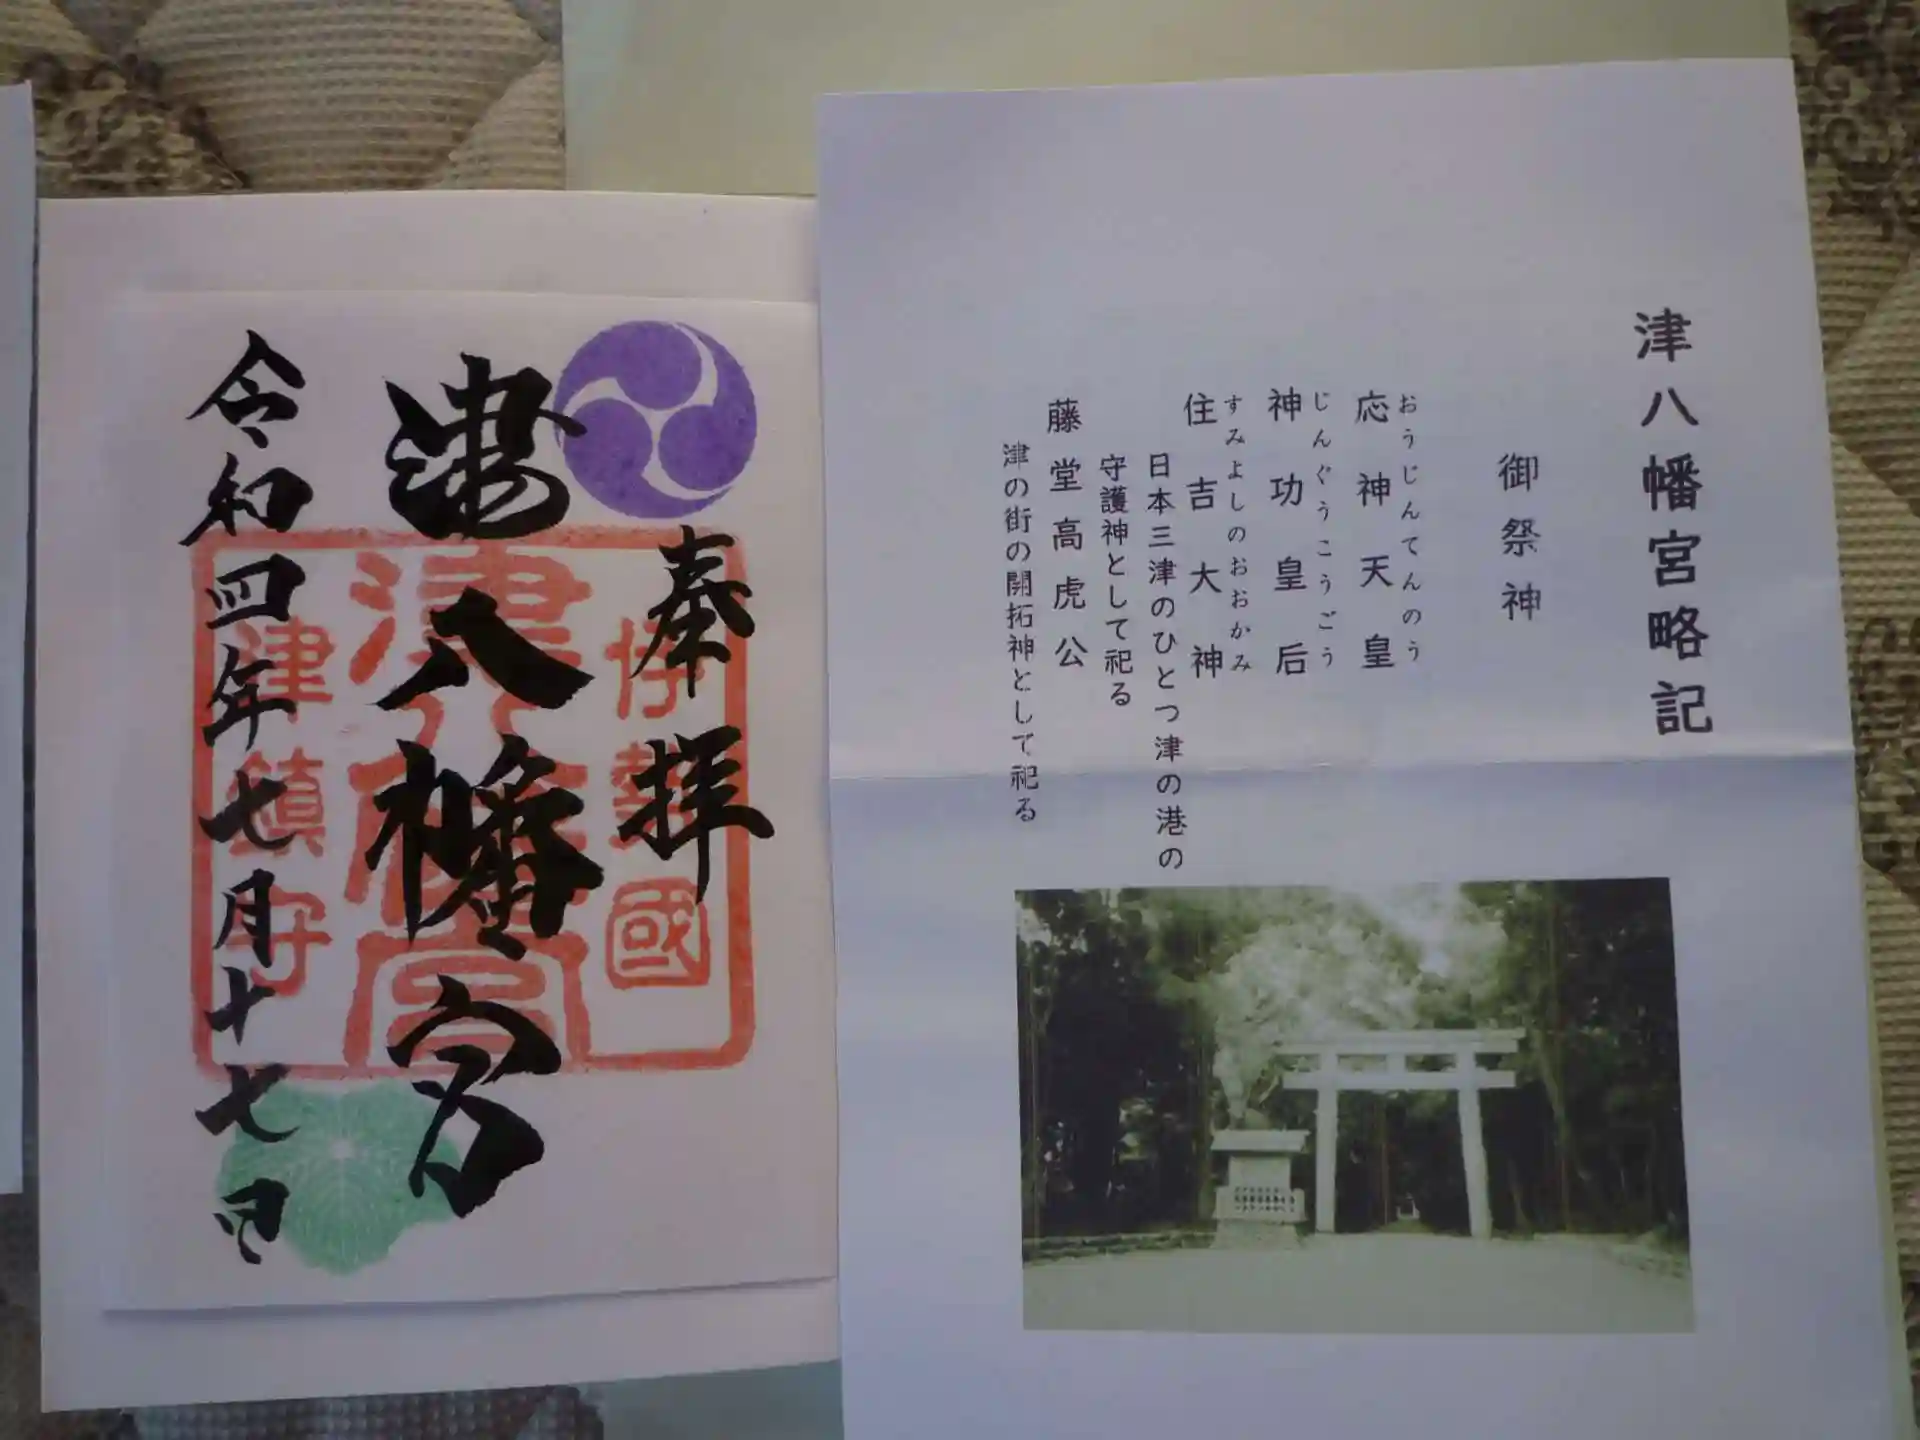 津八幡宮略記
御祭神
おうじんてんのう
応神天皇
じんぐうこうごう
神功皇后
すみよしのおおかみ
住吉大神
日本三津のひとつ津の港の
守護神として祀る
藤堂高虎公
津の街の開拓神として祀る
奉拝
伊勢國
津八幡宮
津八幡宮
令和四年七月十七日
津鎮守